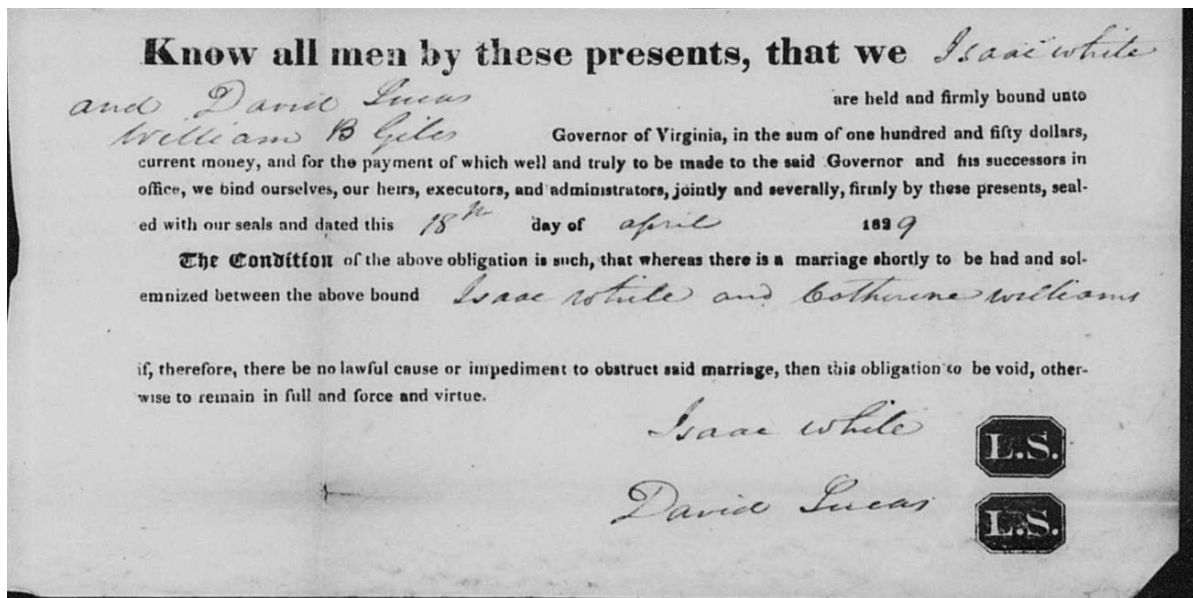 Know all men by these presents, that we Isaac white
and David Lucas are held and firmly bound unto
William B Giles Governor of Virginia, in the sum of one hundred and fifty dollars,
current money, and for the payment of which well and truly to be made to the said Governor and his successors in
office, we bind ourselves, our heirs, executors, and administrators, jointly and severally, firmly by these presents, seal-
ed with our seals and dated this 18th day of april 1829
The Condition of the above obligation is such, that whereas there is a marriage shortly to be had and sol-
emnized between the above bound Isaac White and Catherine williams
if, therefore, there be no lawful cause or impediment to obstruct said marriage, then this obligation to be void, other-
wise to remain in full and force and virtue.
Isaac white L.S.
David Lucas L.S.